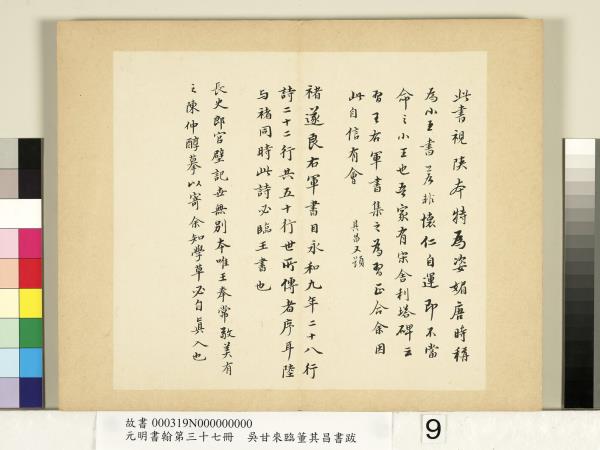 此書視陝本特為姿媚唐時稱
為小王書若非懷仁自運即不當
命之小王也吾家有宋舍利塔碑云
習王右軍書集之為習正合余因
此自信有會
其昌又題
褚遂良右軍書目永和九年二十八行
詩二十二行共五十行世所傳者序耳陸
与褚同時此詩必臨王書也
長史郎官壁記世無別本唯王奉常敬美有
之陳仲醇摹以寄余知學草必自真入也
故書 000319N000000000
元明書翰第三十七冊 吳甘來臨董其昌書跋
9